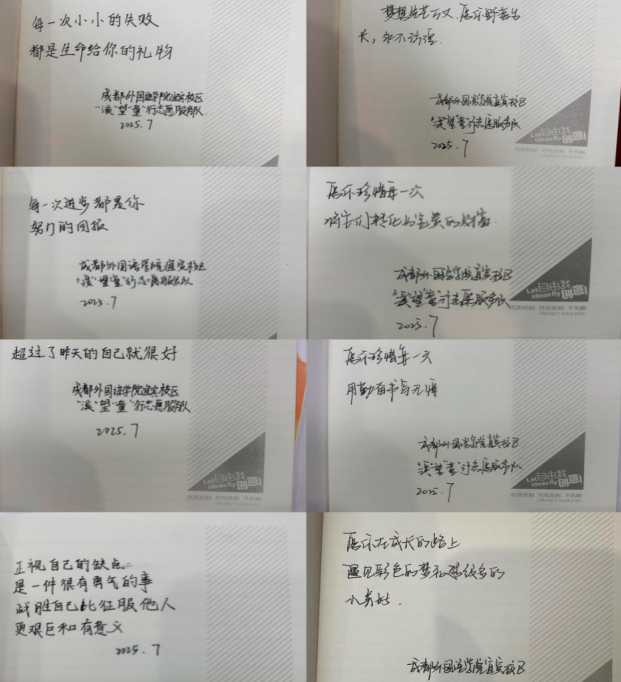 每一次小小的失败
都是生命给你的礼物
成都外国语学院宜宾校区
"溪"望"童"行志愿服务队
2025.7
愿你野蛮生
长,永不
成都外国语学院宜宾校区
"溪"望"童"行志愿服务队
2025.7
Let自由我
ideas fly创意!
每一次进步都是你
努力的回报
成都外国语学院宜宾校区
"溪"望"童"行志愿服务队
2025.7
愿你珍惜每一次
将它们转化为宝贵的财富
成都外国语学院宜宾校区
"溪"望"童"行志愿服务队
2025.7
Let自由我
ideas fly创意!
超过了昨天的自己就很好
成都外国语学院宜宾校区
"溪"望"童"行志愿服务队
2025.7
Let自由我
ideas fly创意!
愿你珍惜每一次
用勤奋书写无悔
成都外国语学院宜宾校区
"溪"望"童"行志愿服务队
2025.7
Let自由我
ideas fly创意!
正视自己的缺点
是一件很有勇气的事
战胜自己比征服他人
更艰巨和有意义
2025.7
愿你在成长的路上
遇见彩色的梦和超级多的
小美好.
成都外国语学院宜宾校区